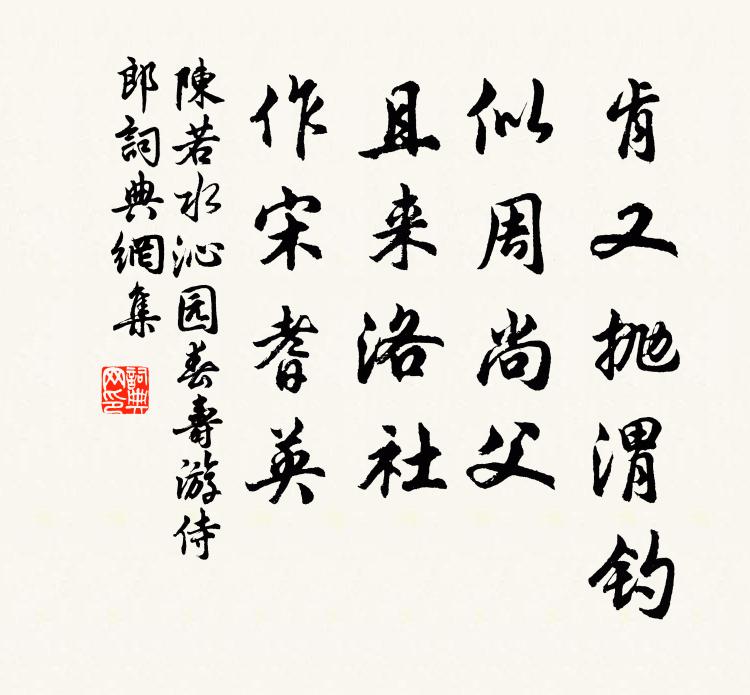 肯又抛渭钓
似周尚父
且来洛社
作宋耆英
陳若水沁园春壽游侍
郎詞典網集
詞典网印